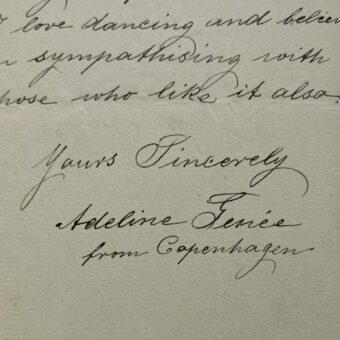 I love dancing and believe
in sympathising with
those who like it also.
Yours Sincerely
Adeline Genée
from Copenhagen